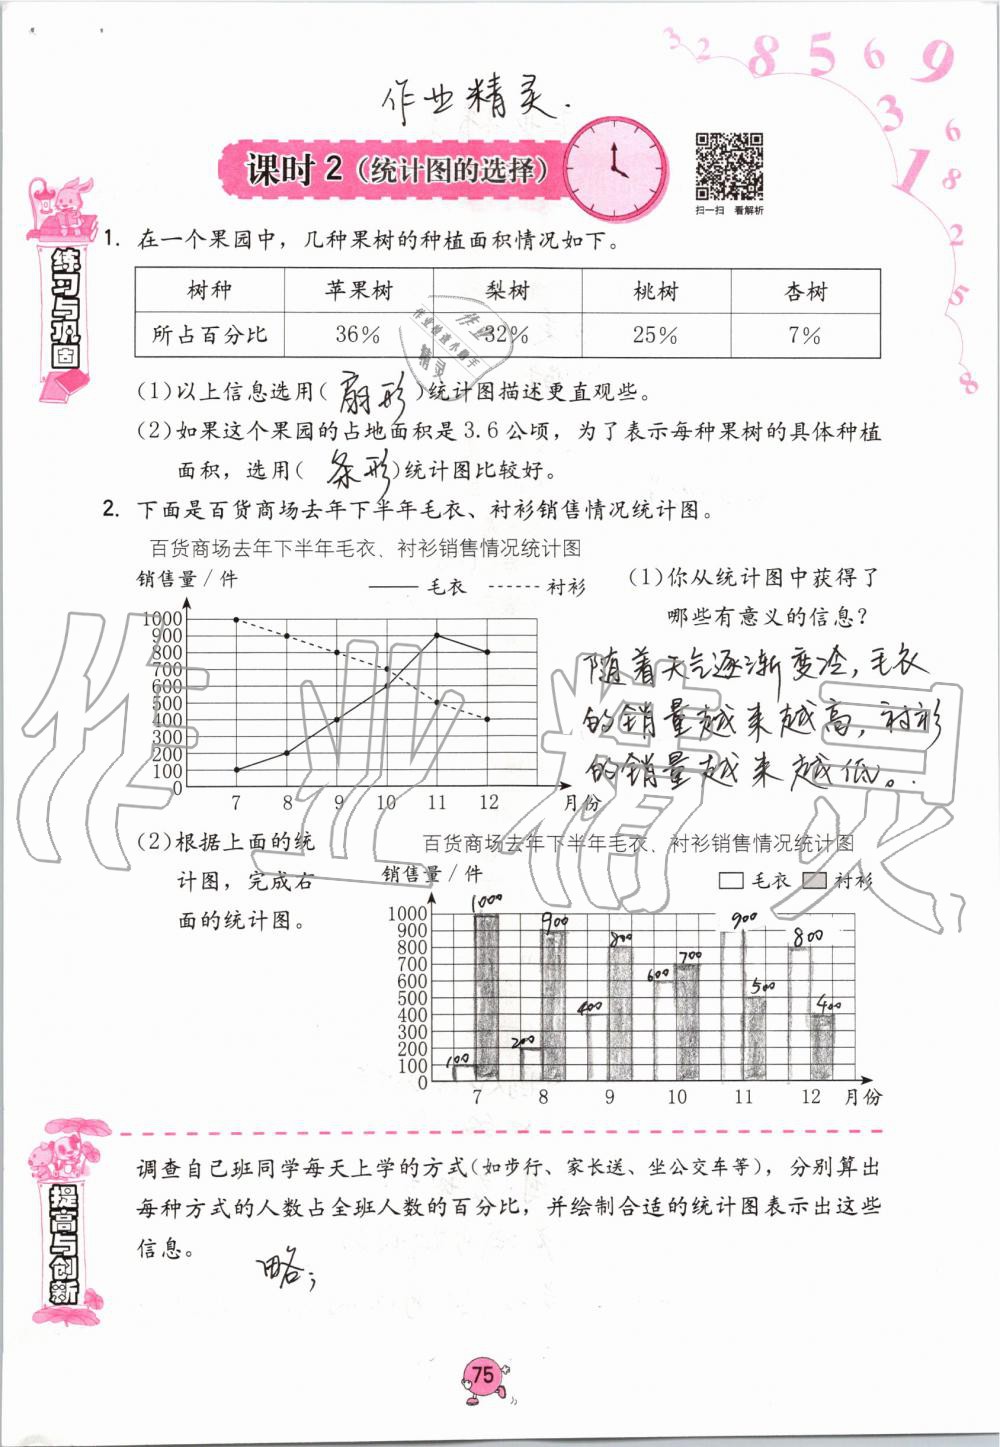 3 2 8 5 6 9
3
6
1
8
2
5
8
作业精灵.
课时2（统计图的选择）
扫一扫 看解析
练习与巩固
1. 在一个果园中，几种果树的种植面积情况如下。
树种 苹果树 梨树 桃树 杏树
所占百分比 36% 32% 25% 7%
作业
作业检查小助手
精灵
(1)以上信息选用(扇形)统计图描述更直观些。
(2)如果这个果园的占地面积是3.6公顷，为了表示每种果树的具体种植
面积，选用(条形)统计图比较好。
2. 下面是百货商场去年下半年毛衣、衬衫销售情况统计图。
百货商场去年下半年毛衣、衬衫销售情况统计图
销售量/件 毛衣 衬衫
1000
900
800
700
600
500
400
300
200
100
0
7 8 9 10 11 12 月份
(1)你从统计图中获得了
哪些有意义的信息？
随着天气逐渐变冷,毛衣
的销量越来越高,衬衫
的销量越来越低。
作业精灵
(2)根据上面的统
计图，完成右
面的统计图。
百货商场去年下半年毛衣、衬衫销售情况统计图
销售量/件 毛衣 衬衫
1000
900
800
700
600
500
400
300
200
100
0
100 1000 200 900 400 800 600 700 900 500 800 400
7 8 9 10 11 12 月份
提高与创新
调查自己班同学每天上学的方式(如步行、家长送、坐公交车等)，分别算出
每种方式的人数占全班人数的百分比，并绘制合适的统计图表示出这些
信息。
略;
75